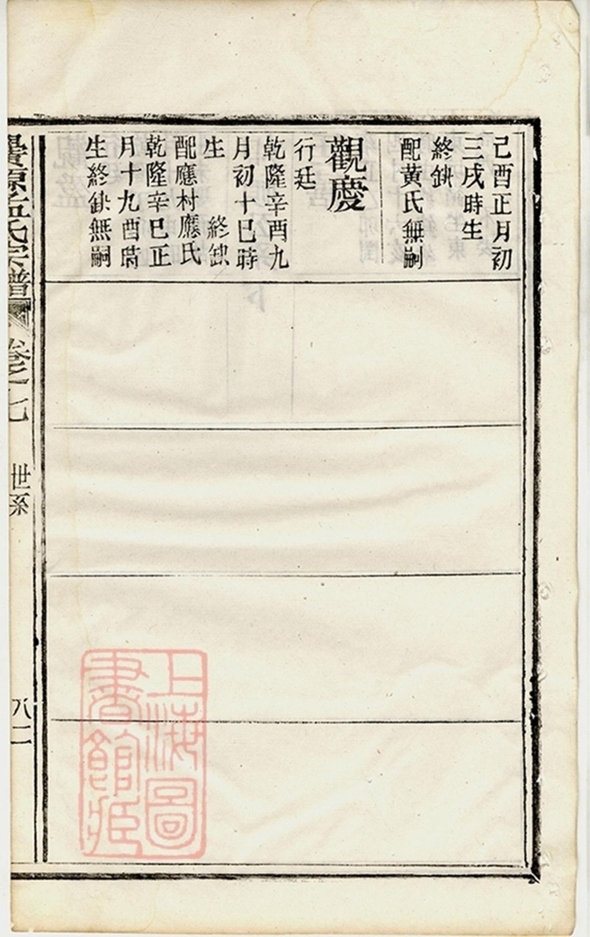 己酉正月初
三戌時生
終缺
配黃氏無嗣
觀慶
行廷
乾隆辛酉九
月初十巳時
生 終缺
配應村應氏
乾隆辛巳正
月十九酉時
生終缺無嗣
源孟氏宗譜
卷之七
世系
八二
上海圖
書館藏